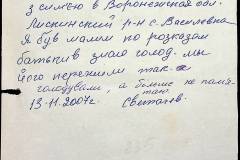 з сім'єю в Воронежская обл.
Лискинский р-н с. Василевка
Я був малим по розказам
батьків знаю голод. мы
його пережили так-же
голодували, а больше не памя-
таю.
13-11.2007г.